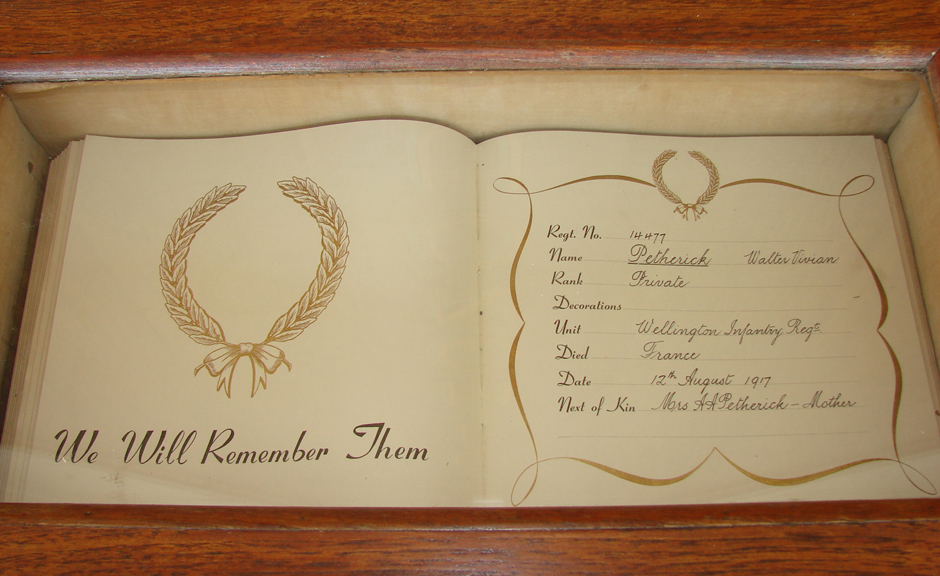 We Will Remember Them
Regt. No. 14477
Name Petherick Walter Vivian
Rank Private
Decorations
Unit Wellington Infantry Regt.
Died France
Date 12th August 1917
Next of Kin Mrs A A Petherick - Mother